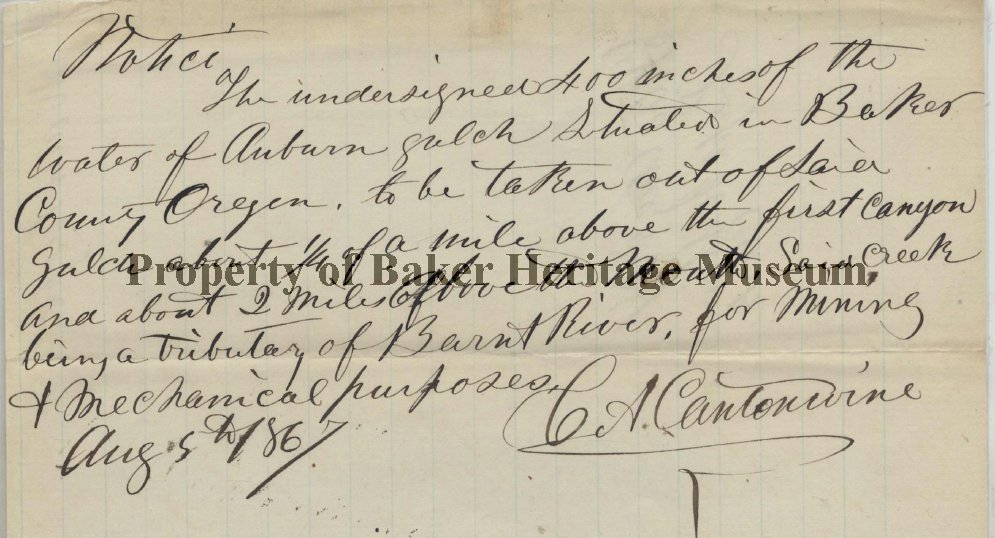 Notice
The undersigned 400 inches of the
water of Auburn gulch Situated in Baker
County Oregon. to be taken out of Said
gulch about 1/4 of a mile above the first Canyon
Property of Baker Heritage Museum.
and about 2 miles above the Mouth, Said Creek
being a tributary of Barnt River, for Mining
& Mechanical purposes.
C A. Cantonwine
Aug 5th 1867